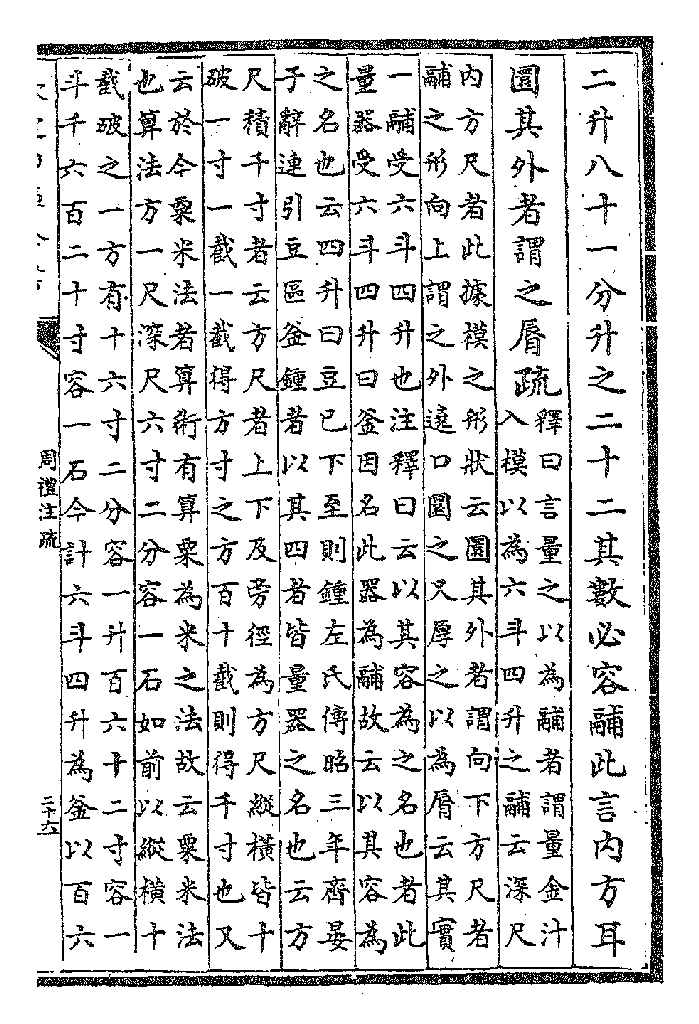 二升八十一分升之二十二其數必容鬴此言内方耳
圜其外者謂之脣疏
釋曰言量之以為鬴者謂量金汁
入模以為六斗四升之鬴云深尺
内方尺者此據模之形狀云圜其外者謂向下方尺者
鬴之形向上謂之外遶口圜之又厚之以為脣云其實
一鬴受六斗四升也注釋曰云以其容為之名也者此
量器受六斗四升曰釜因名此器為鬴故云以其容為
之名也云四升曰豆已下至則鍾左氏傳昭三年齊晏
子辭連引豆區釜鍾者以其四者皆量器之名也云方
尺積千寸者云方尺者上下及旁徑為方尺縱橫皆十
破一寸一截一截得方寸之方百十截則得千寸也又
云於今粟米法者算術有算粟為米之法故云粟米法
也算法方一尺深尺六寸二分容一石如前以縱橫十
截破之一方有十六寸二分容一升百六十二寸容一
斗千六百二十寸容一石今計六斗四升為釜以百六
周禮注疏
二十六